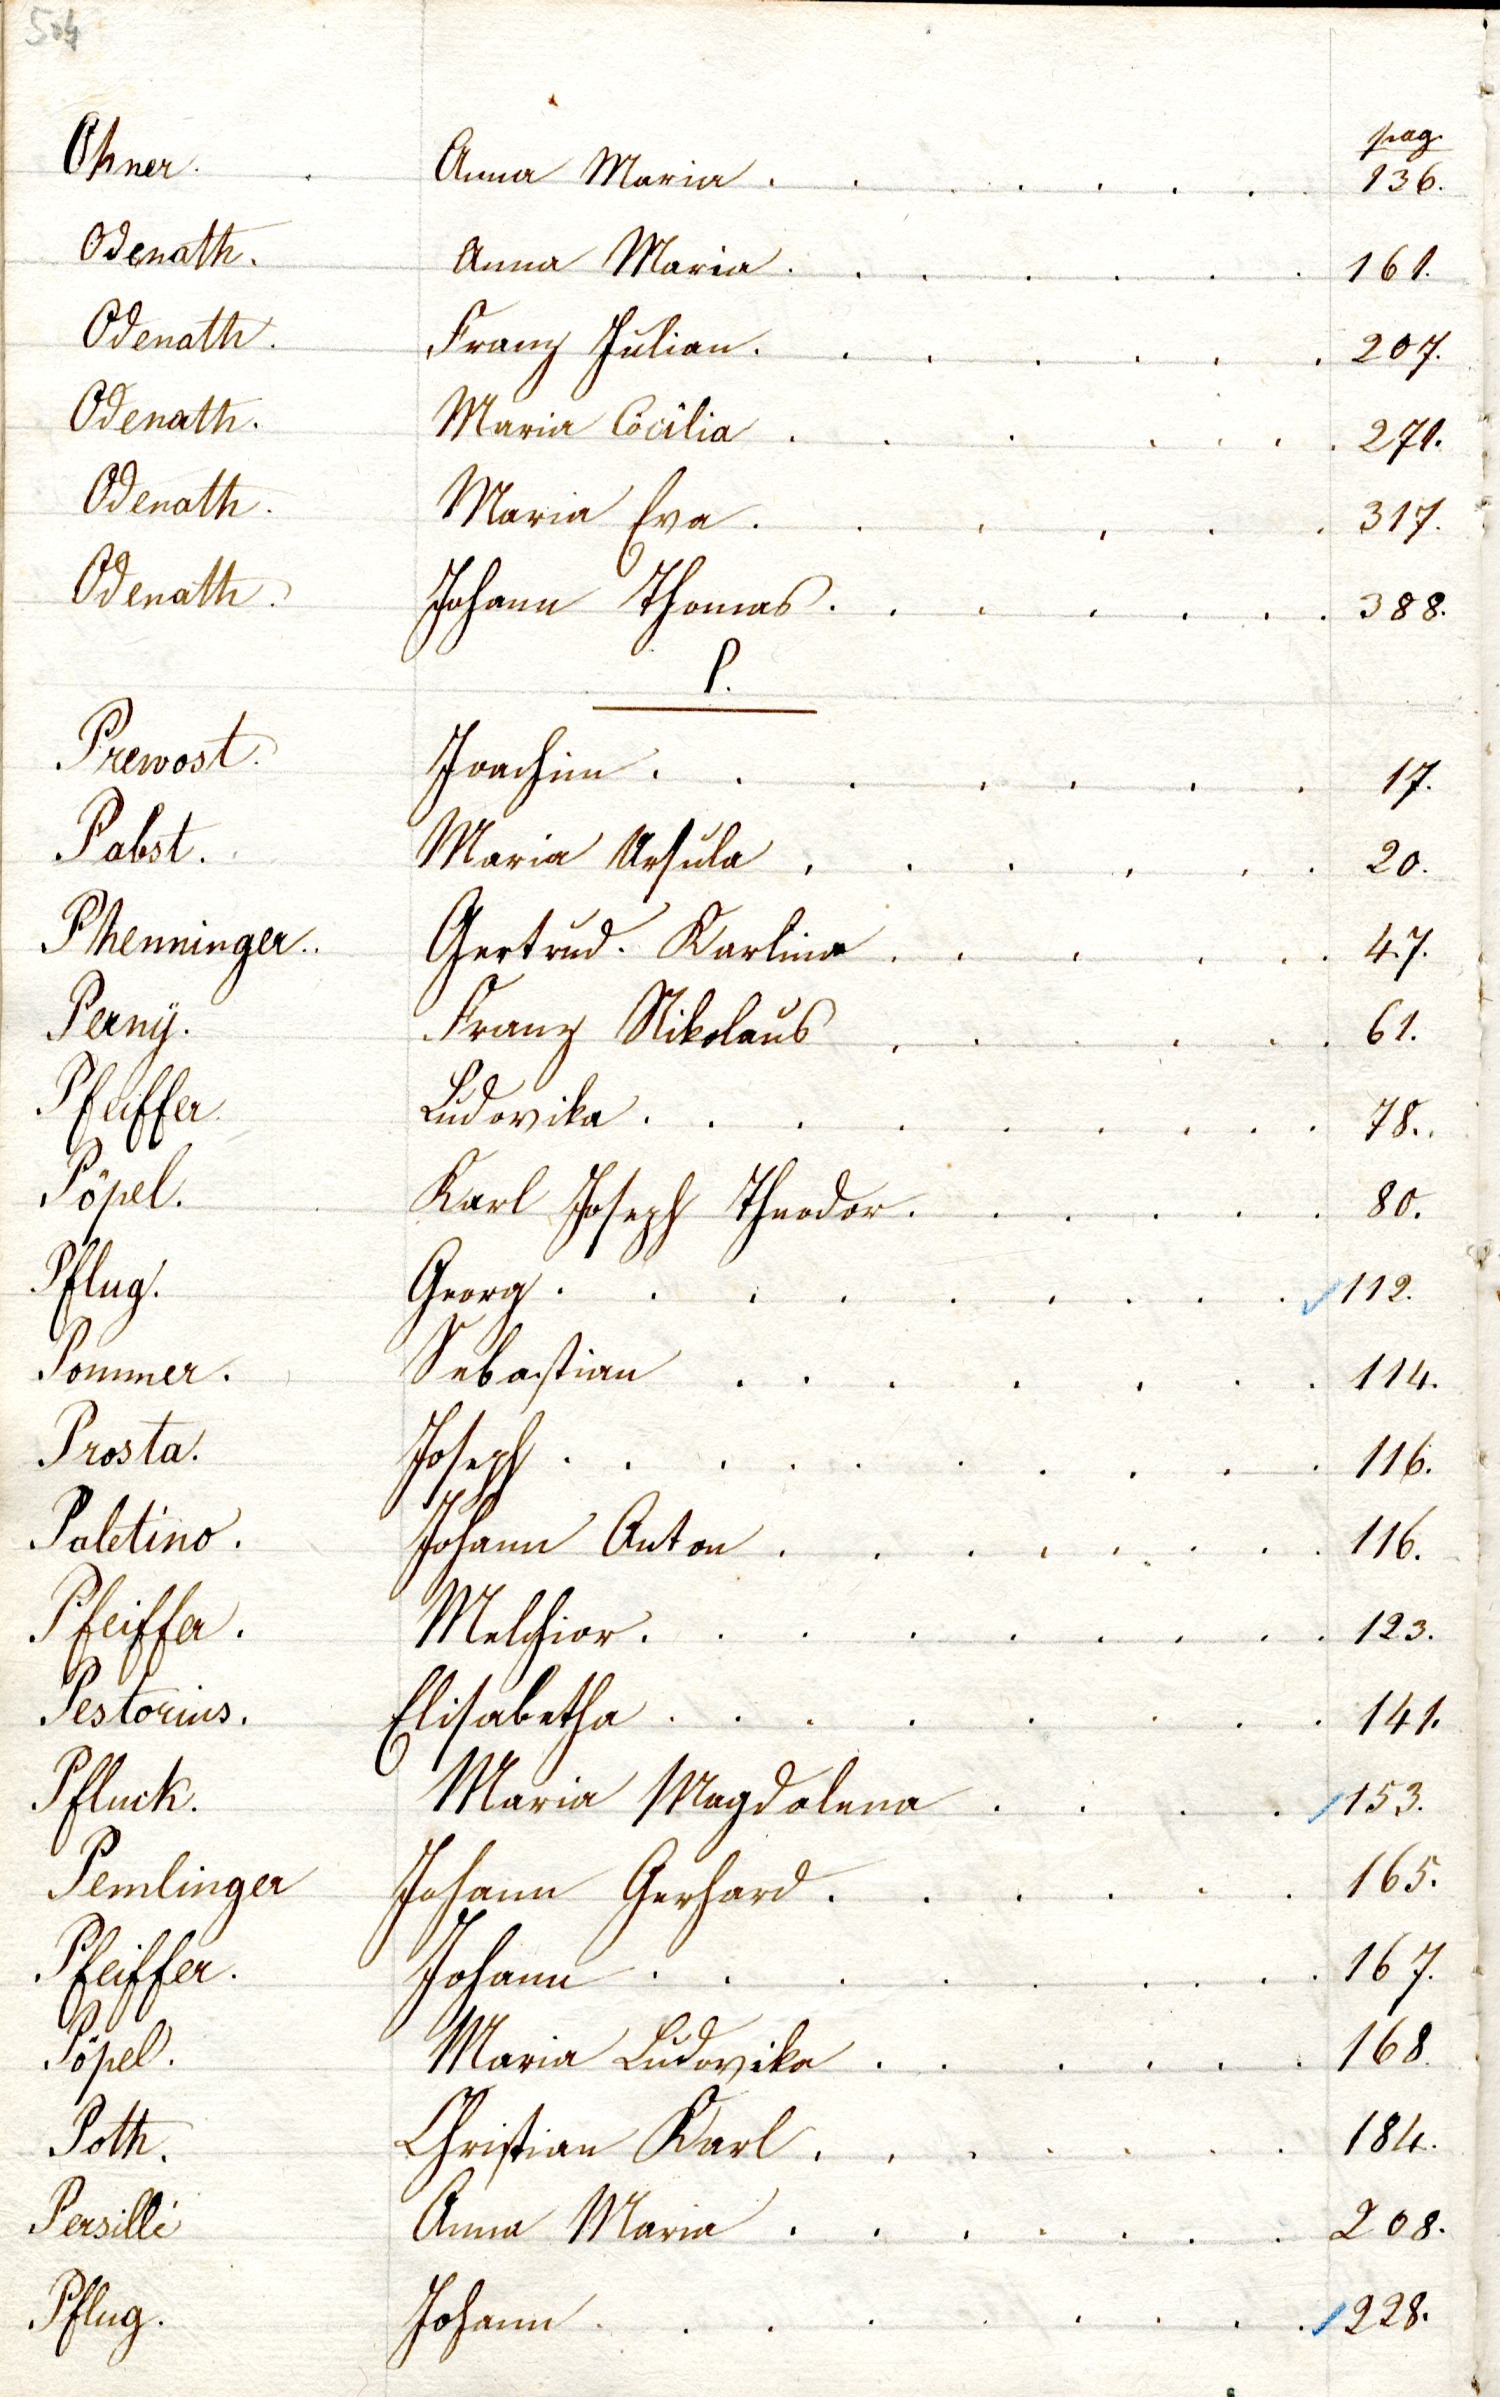 504
pag.
Ohner. Anna Maria 136.
Odenath. Anna Maria 161.
Odenath. Franz Julian 207.
Odenath. Maria Cöcilia 271.
Odenath. Maria Eva 317.
Odenath. Johann Thomas 388.
P.
Prewost. Joachim 17.
Pabst. Maria Ursula 20.
Phenninger. Gertrud. Karlina 47.
Perny. Franz Nikolaus 61.
Pfeiffer Ludovika 78.
Pöpel. Karl Joseph Theodor 80.
Pflug. Georg 112.
Pommer. Sebastian 114.
Prosta. Joseph 116.
Paletino. Johann Anton 116.
Pfeiffer. Melchior 123.
Pestorius. Elisabetha 141.
Pfluck. Maria Magdalena 153.
Pemlinger Johann Gerhard 165.
Pfeiffer. Johann 167.
Pöpel. Maria Ludovika 168
Poth. Christian Karl 184.
Persilli Anna Maria 208.
Pflug. Johann 228.